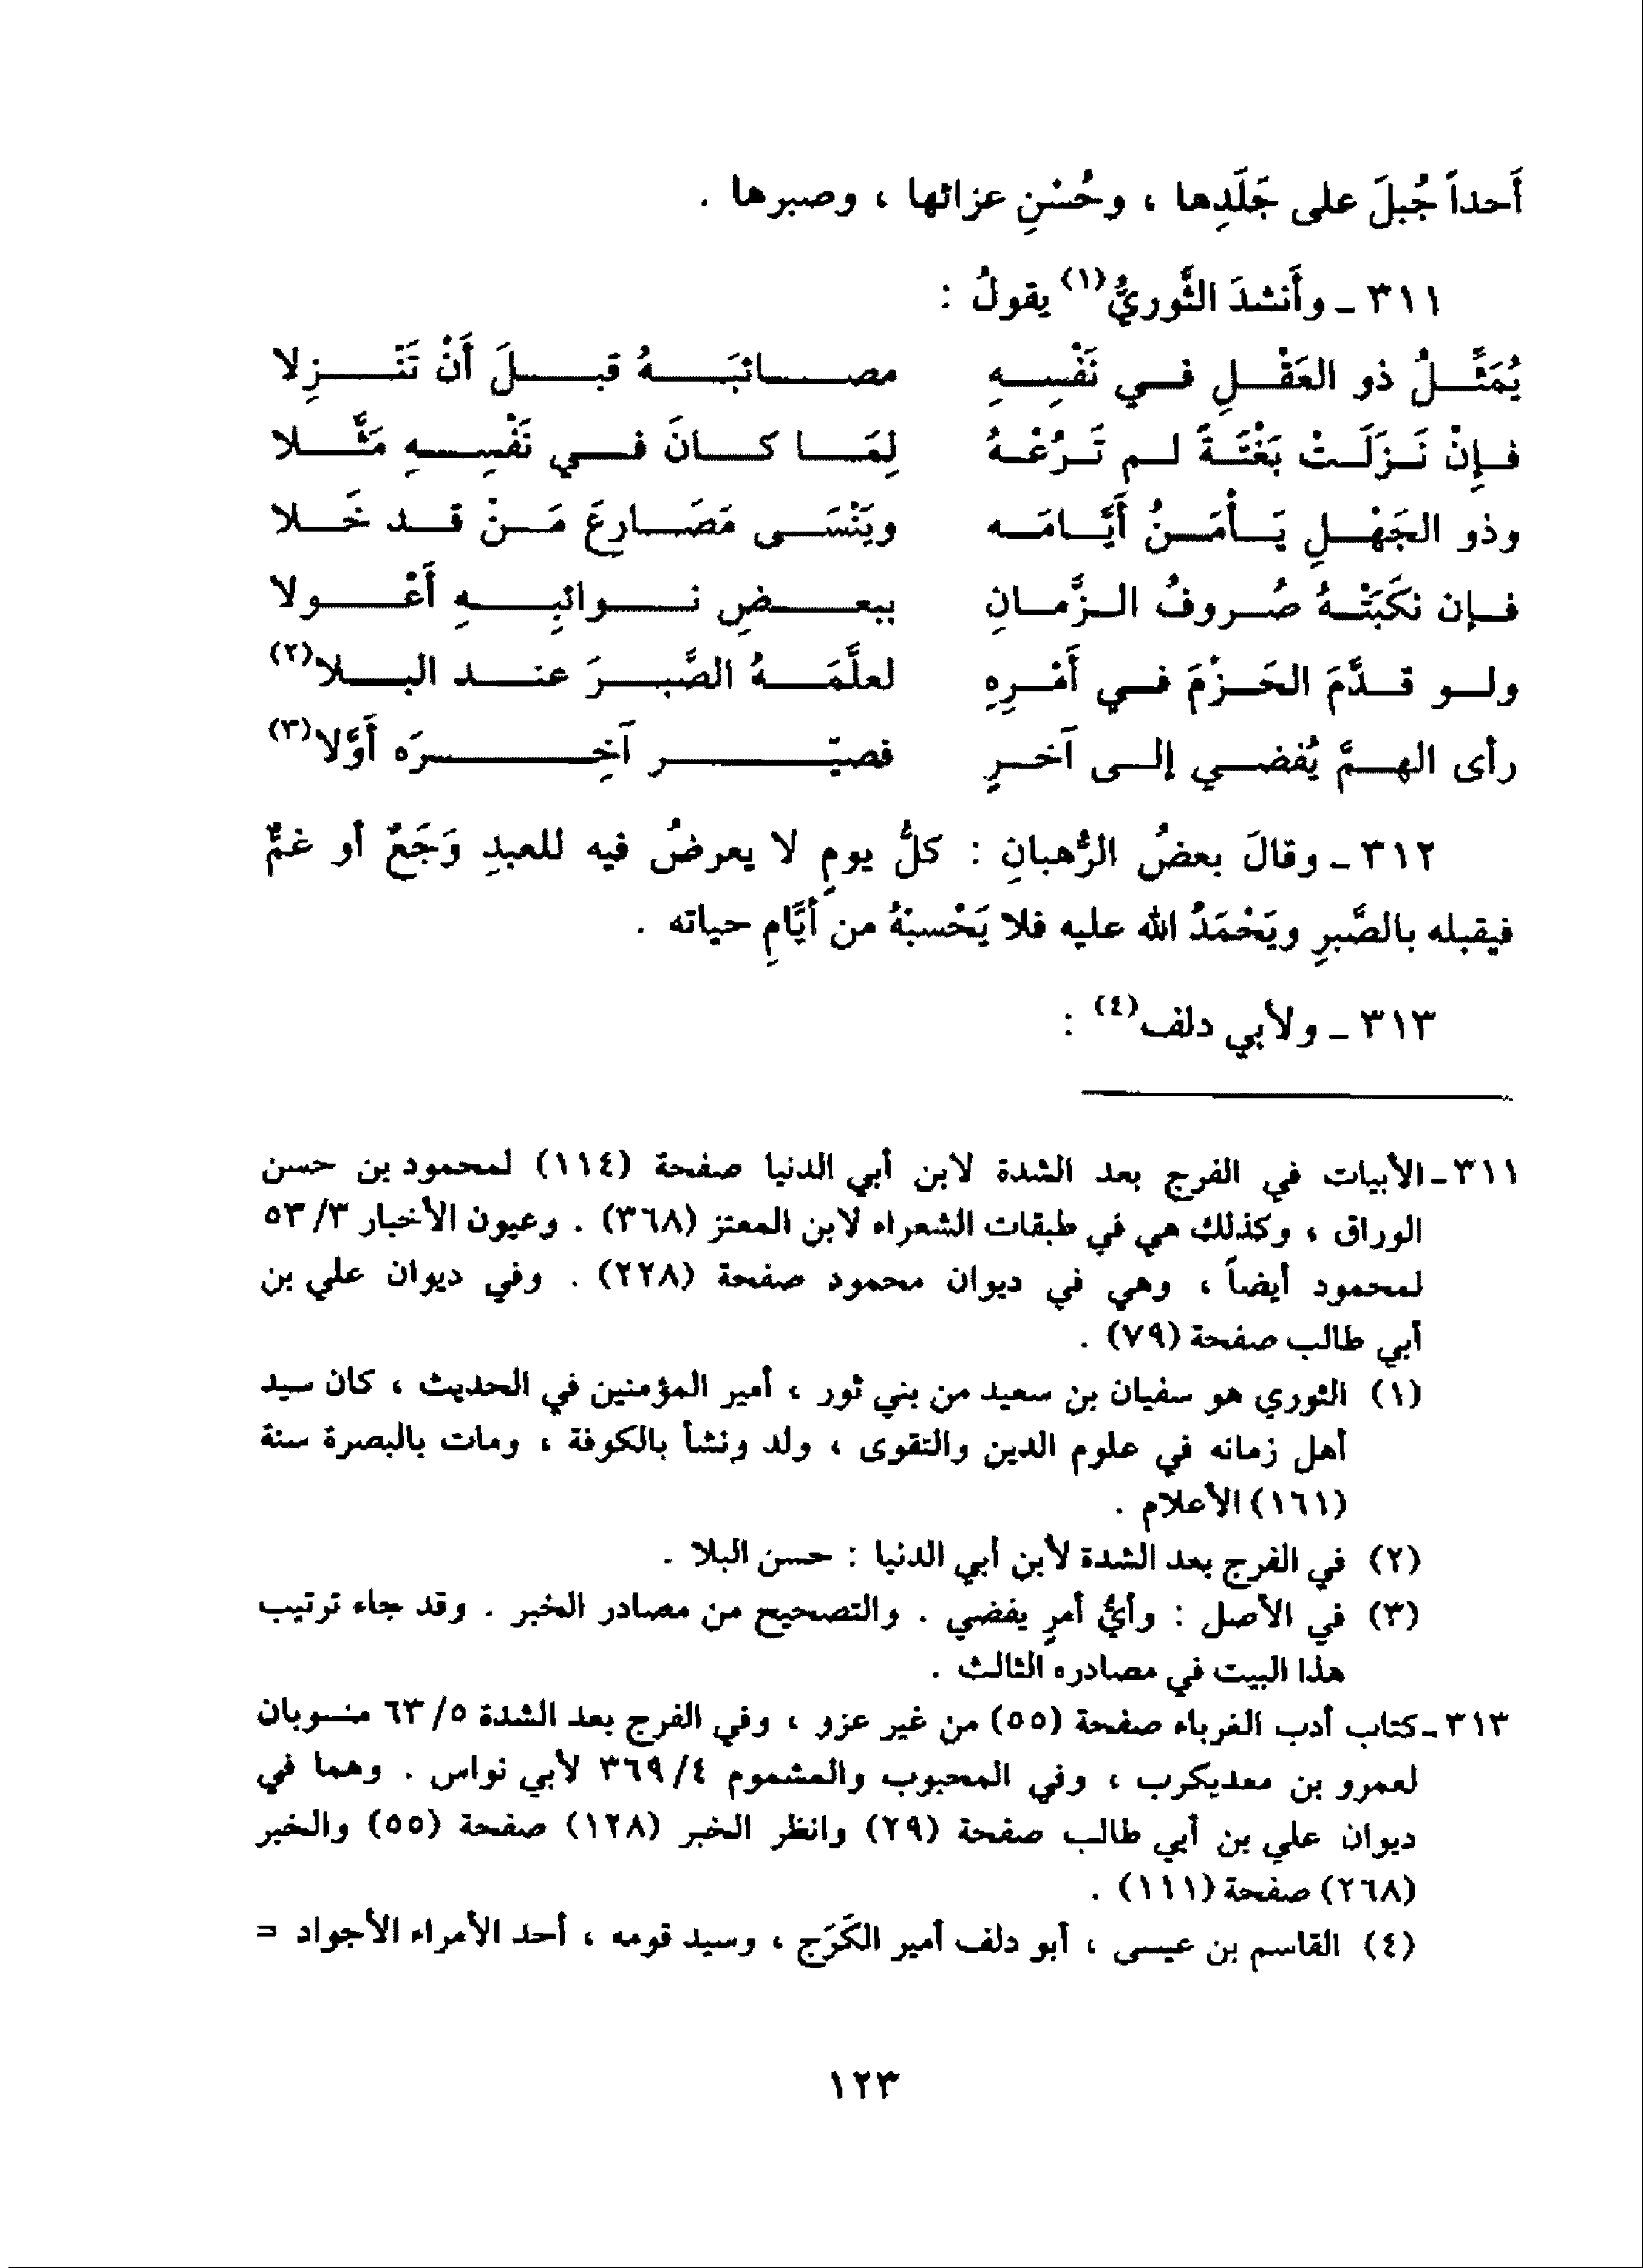 أَحداً جُبلَ على جَلَدِها ، وحُسْنِ عزائها ، وصبرها .
٣١١ ـ وأَنشدَ الثَّوريُّ(١) يقولُ :
يُمَثِّلُ ذو العَقْلِ في نَفْسِهِ مصائبَهُ قبلَ أَنْ تَنْزِلا
فإِنْ نَزَلَتْ بَغْتَةً لم تَرُعْهُ لِمَا كانَ في نَفْسِهِ مَثَّلا
وذو الجَهْلِ يَأْمَنُ أَيَّامَه ويَنْسَى مَصَارِعَ مَنْ قد خَلا
فإن نكَبَتْهُ صُروفُ الزَّمانِ ببعضِ نوائبِهِ أَعْولا
ولو قدَّمَ الحَزْمَ في أَمْرِهِ لعلَّمَهُ الصَّبرَ عند البلا(٢)
رأى الهمَّ يُفضي إلى آخرٍ فصيّر آخِرَه أَوَّلا(٣)
٣١٢ ـ وقالَ بعضُ الرُّهبانِ : كلُّ يومٍ لا يعرضُ فيه للعبدِ وَجَعٌ أو غمٌّ
فيقبله بالصَّبرِ ويَحْمَدُ الله عليه فلا يَحْسبْهُ من أيَّامِ حياته .
٣١٣ ـ ولأبي دلف(٤) :
٣١١ ـ الأبيات في الفرج بعد الشدة لابن أبي الدنيا صفحة (١١٤) لمحمود بن حسن
الوراق ، وكذلك هي في طبقات الشعراء لابن المعتز (٣٦٨) . وعيون الأخبار ٣/ ٥٣
لمحمود أيضاً ، وهي في ديوان محمود صفحة (٢٢٨) . وفي ديوان علي بن
أبي طالب صفحة (٧٩) .
(١) الثوري هو سفيان بن سعيد من بني ثور ، أمير المؤمنين في الحديث ، كان سيد
أهل زمانه في علوم الدين والتقوى ، ولد ونشأ بالكوفة ، ومات بالبصرة سنة
(١٦١) الأعلام .
(٢) في الفرج بعد الشدة لأبن أبي الدنيا : حسن البلا .
(٣) في الأصل : وأيُّ أمرٍ يفضي . والتصحيح من مصادر الخبر . وقد جاء ترتيب
هذا البيت في مصادره الثالث .
٣١٣ ـ كتاب أدب الغرباء صفحة (٥٥) من غير عزو ، وفي الفرج بعد الشدة ٥/ ٦٣ منسوبان
لعمرو بن معديكرب ، وفي المحبوب والمشموم ٤/ ٣٦٩ لأبي نواس . وهما في
ديوان علي بن أبي طالب صفحة (٢٩) وانظر الخبر (١٢٨) صفحة (٥٥) والخبر
(٢٦٨) صفحة (١١١) .
(٤) القاسم بن عيسى ، أبو دلف أمير الكَرَج ، وسيد قومه ، أحد الأمراء الأجواد =
١٢٣